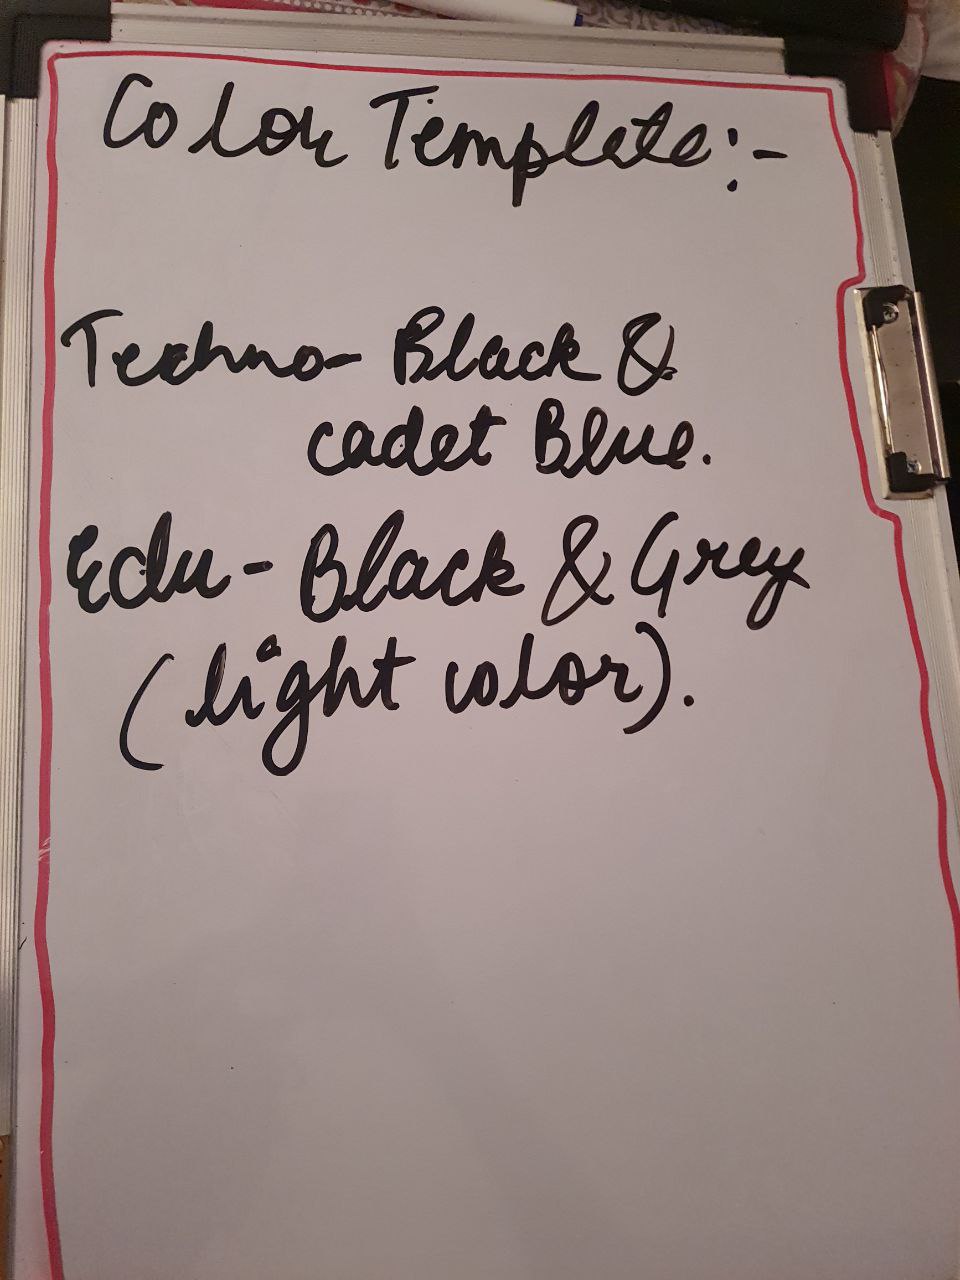 Color Template:-
Techno- Black &
cadet Blue.
Edu- Black & Grey
(light color).